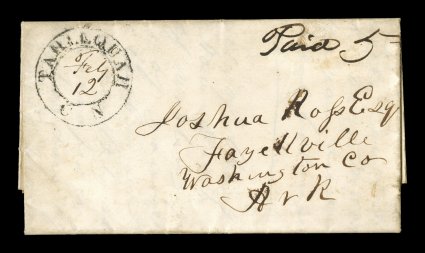 TAHLEQUAH
Feby
12
C N
Paid 5
Joshua Ross Esq
Fayettville
Washington Co
Ark